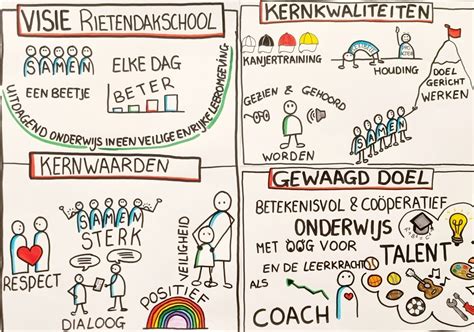 VISIE RIETENDAKSCHOOL
SAMEN
ELKE DAG
EEN BEETJE
BETER
UITDAGEND ONDERWIJS IN EEN VEILIGE EN RIJKE LEEROMGEVING
KERNKWALITEITEN
KANJERTRAINING
HOUDING
DOEL
GERICHT
WERKEN
GEZIEN & GEHOORD
WORDEN
SAMEN
KERNWAARDEN
SAMEN
STERK
RESPECT
DIALOOG
POSITIEF
VEILIGHEID
GEWAAGD DOEL
BETEKENISVOL & COÖPERATIEF
ONDERWIJS
MET OOG VOOR
TALENT
EN DE LEERKRACHT
ALS
COACH